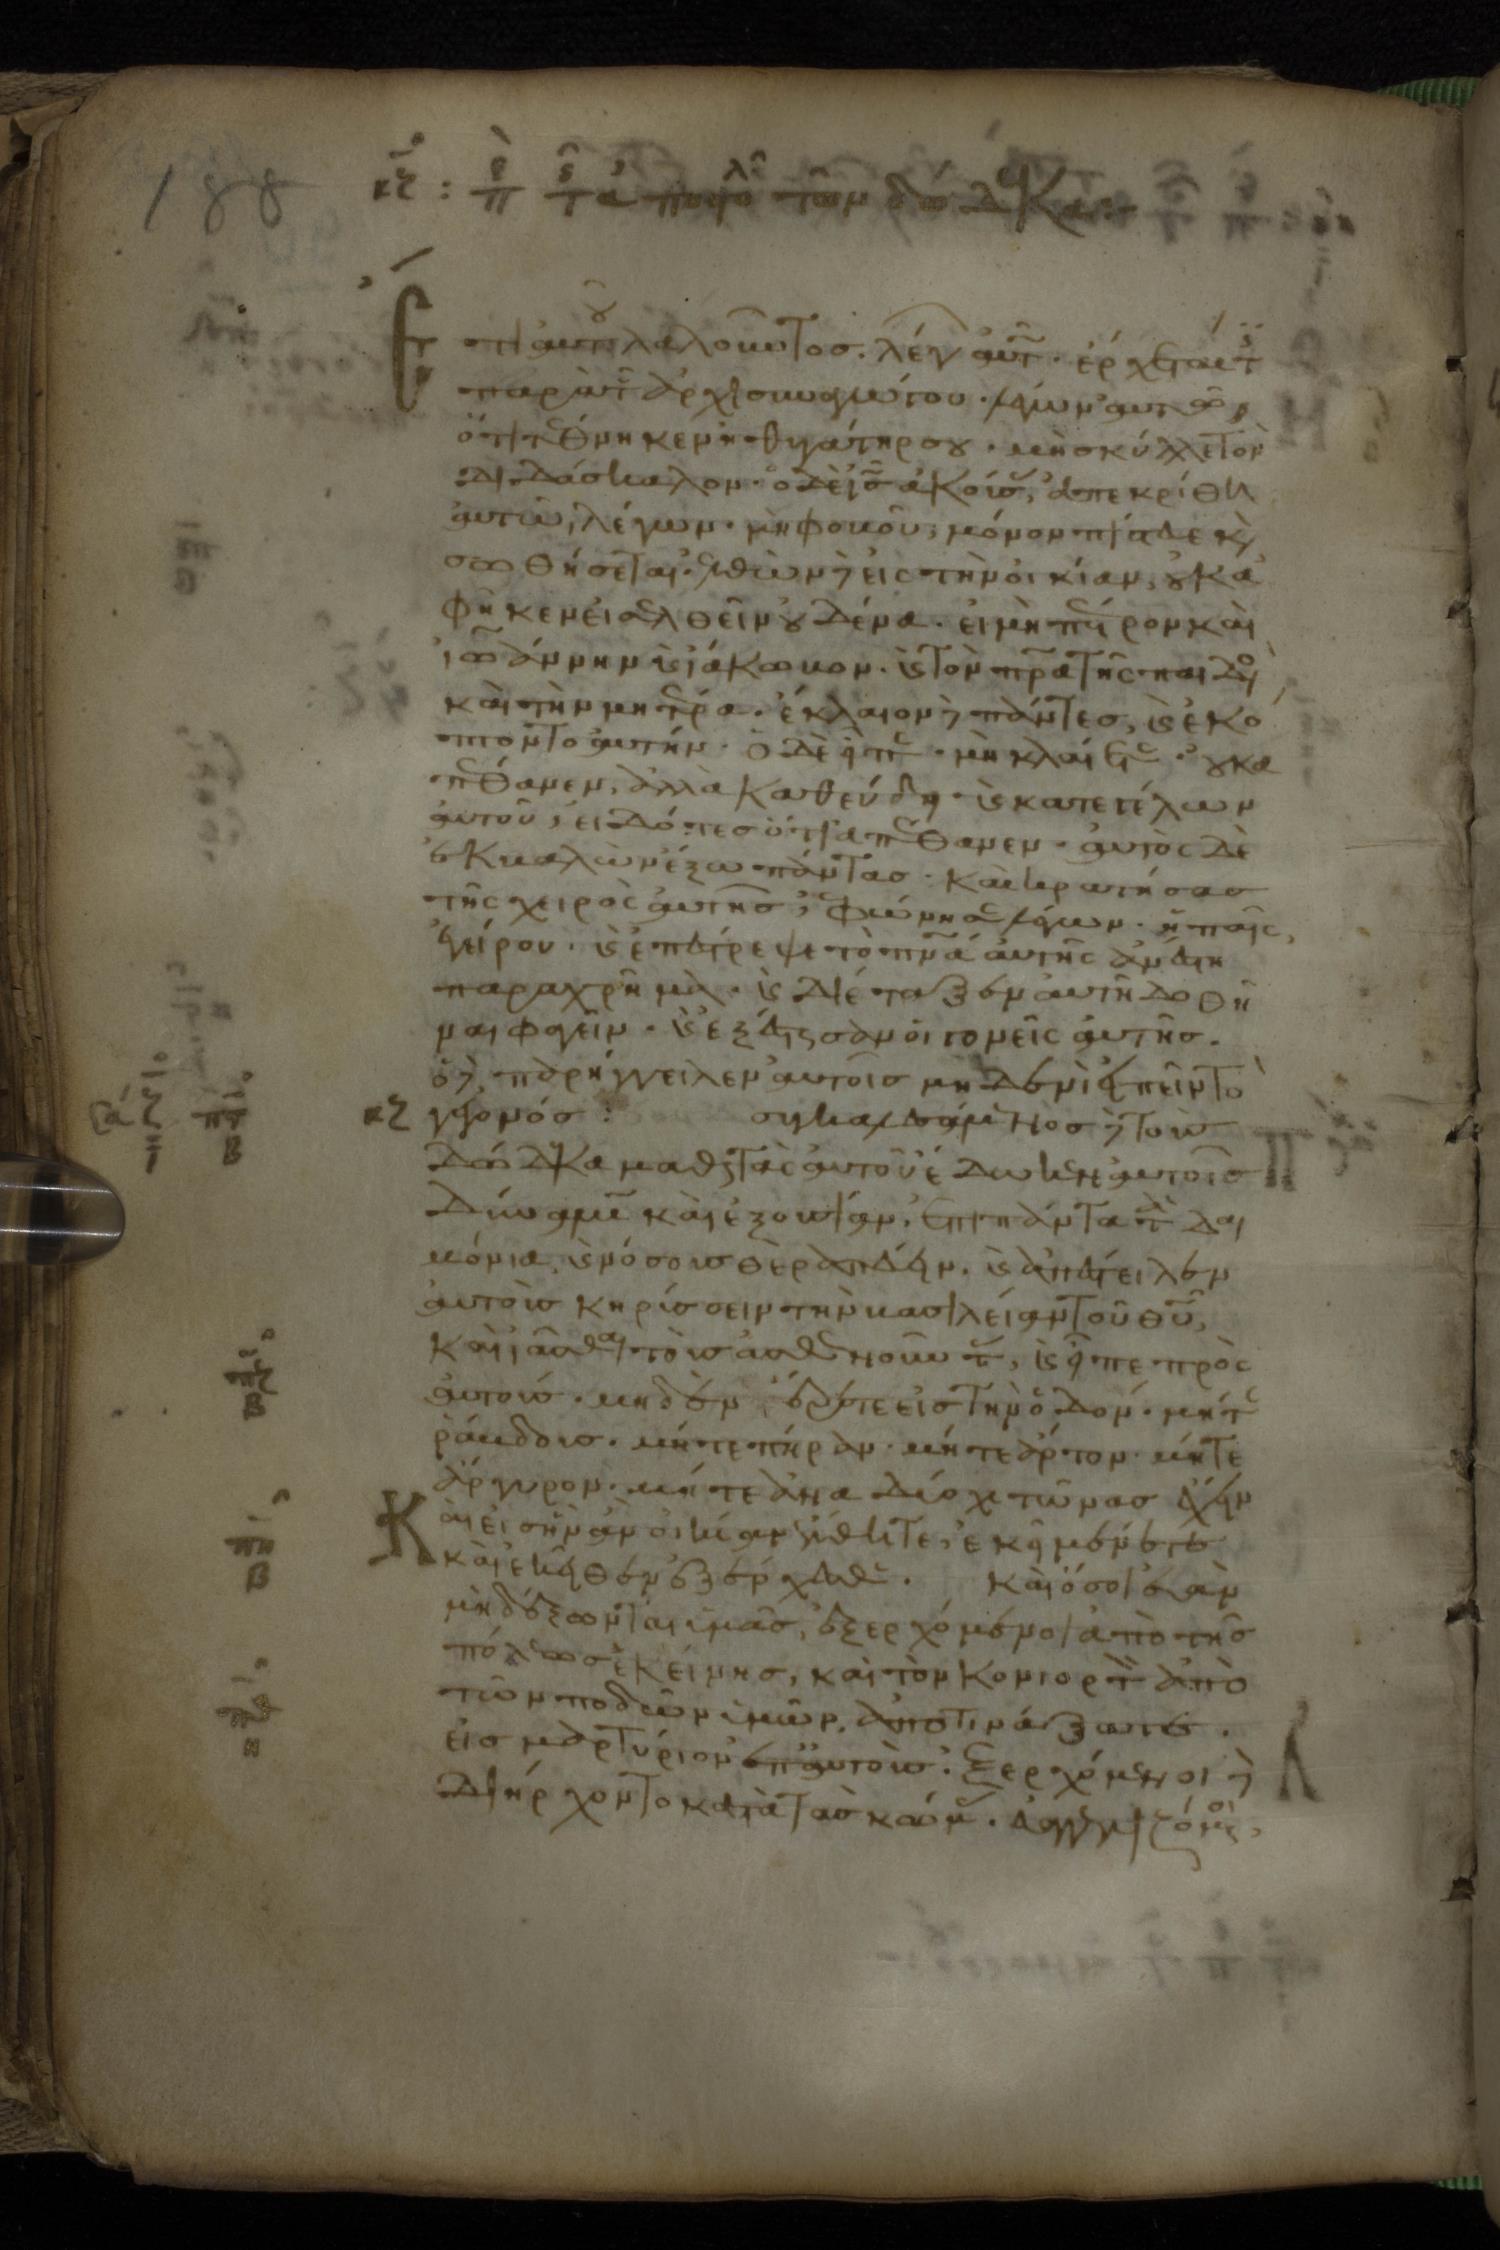 188
κζ: περὶ τῆς ἀποστολῆς τῶν δώδεκα:
Ἔ
τι αὐτοῦ λαλοῦντος. λέγει αὐτῶ. ἔρχεταί τις
παρὰ τοῦ ἀρχισυναγώγου. λέγων αὐτῶ,
ὅτι τέθνηκεν ἡ θυγάτηρ σου. μὴ σκύλλε τὸν
διδάσκαλον. ὁ δὲ ις ἀκούσας, ἀπεκρίθη
αὐτῶ, λέγων. μὴ φοβοῦ, μόνον πίστευε καὶ
σωθήσεται. ἐλθὼν δὲ εἰς τὴν οἰκίαν, οὐκ ἀ
φῆκεν εἰσελθεῖν οὐδένα. εἰ μὴ πέτρον καὶ
ἰωάννην καὶ ἰάκωβον. καὶ τὸν πρα τῆς παιδὸς
καὶ τὴν μητέρα. ἔκλαιον δὲ πάντες, καὶ ἐκό
πτοντο αὐτήν. ὁ δὲ εἶπεν. μὴ κλαίετε. οὐκ ἀ
πέθανεν, ἀλλὰ καθεύδει. καὶ κατεγέλων
αὐτοῦ, εἰδότες ὅτι ἀπέθανεν. αὐτὸς δὲ
ἐκβαλὼν ἔξω πάντας. καὶ κρατήσας
τῆς χειρὸς αὐτῆς, ἐφώνησε λέγων. ἡ παῖς,
ἐγείρου. καὶ ἐπέστρεψε τὸ πνα αὐτῆς καὶ ἀνέστη
παραχρῆμα. καὶ διέταξεν αὐτῆ δοθῆ
ναι φαγεῖν. καὶ ἐξέστησαν οἱ γονεῖς αὐτῆς.
ὁ δὲ παρήγγειλεν αὐτοῖς μηδενὶ εἰπεῖν τὸ
κζ γεγονός: συγκαλεσάμενος δὲ τοὺς
δώδεκα μαθητὰς αὐτοῦ ἔδωκεν αὐτοῖς
δύναμιν καὶ ἐξουσίαν, ἐπὶ πάντα τὰ δαι
μόνια, καὶ νόσους θεραπεύειν. καὶ ἀπέστειλεν
αὐτοὺς κηρύσσειν τὴν βασιλείαν τοῦ θυ,
καὶ ἰᾶσθαι τοὺς ἀσθενοῦντας, καὶ εἶπε πρὸς
αὐτούς. μηδὲν αἴρετε εἰς τὴν ὁδόν. μήτε
ῥάβδους. μήτε πήραν. μήτε ἄρτον. μήτε
ἀργύριον. μήτε ἀνὰ δύο χιτῶνας ἔχειν
Κ
αὶ εἰς ἣν ἂν οἰκίαν εἰσέλθητε, ἐκεῖ μένετε
καὶ ἐκεῖθεν ἐξέρχεσθε. καὶ ὅσοι ἐὰν
μὴ δέξωνται ὑμᾶς, ἐξερχόμενοι ἀπὸ τῆς
πόλεως ἐκείνης, καὶ τὸν κονιορτὸν ἀπὸ
τῶν ποδῶν ὑμῶν, ἀποτινάξατε.
εἰς μαρτύριον ἐπ' αὐτούς. ἐξερχόμενοι δὲ
διήρχοντο κατὰ τὰς κώμας. εὐαγγελιζόμενοι,